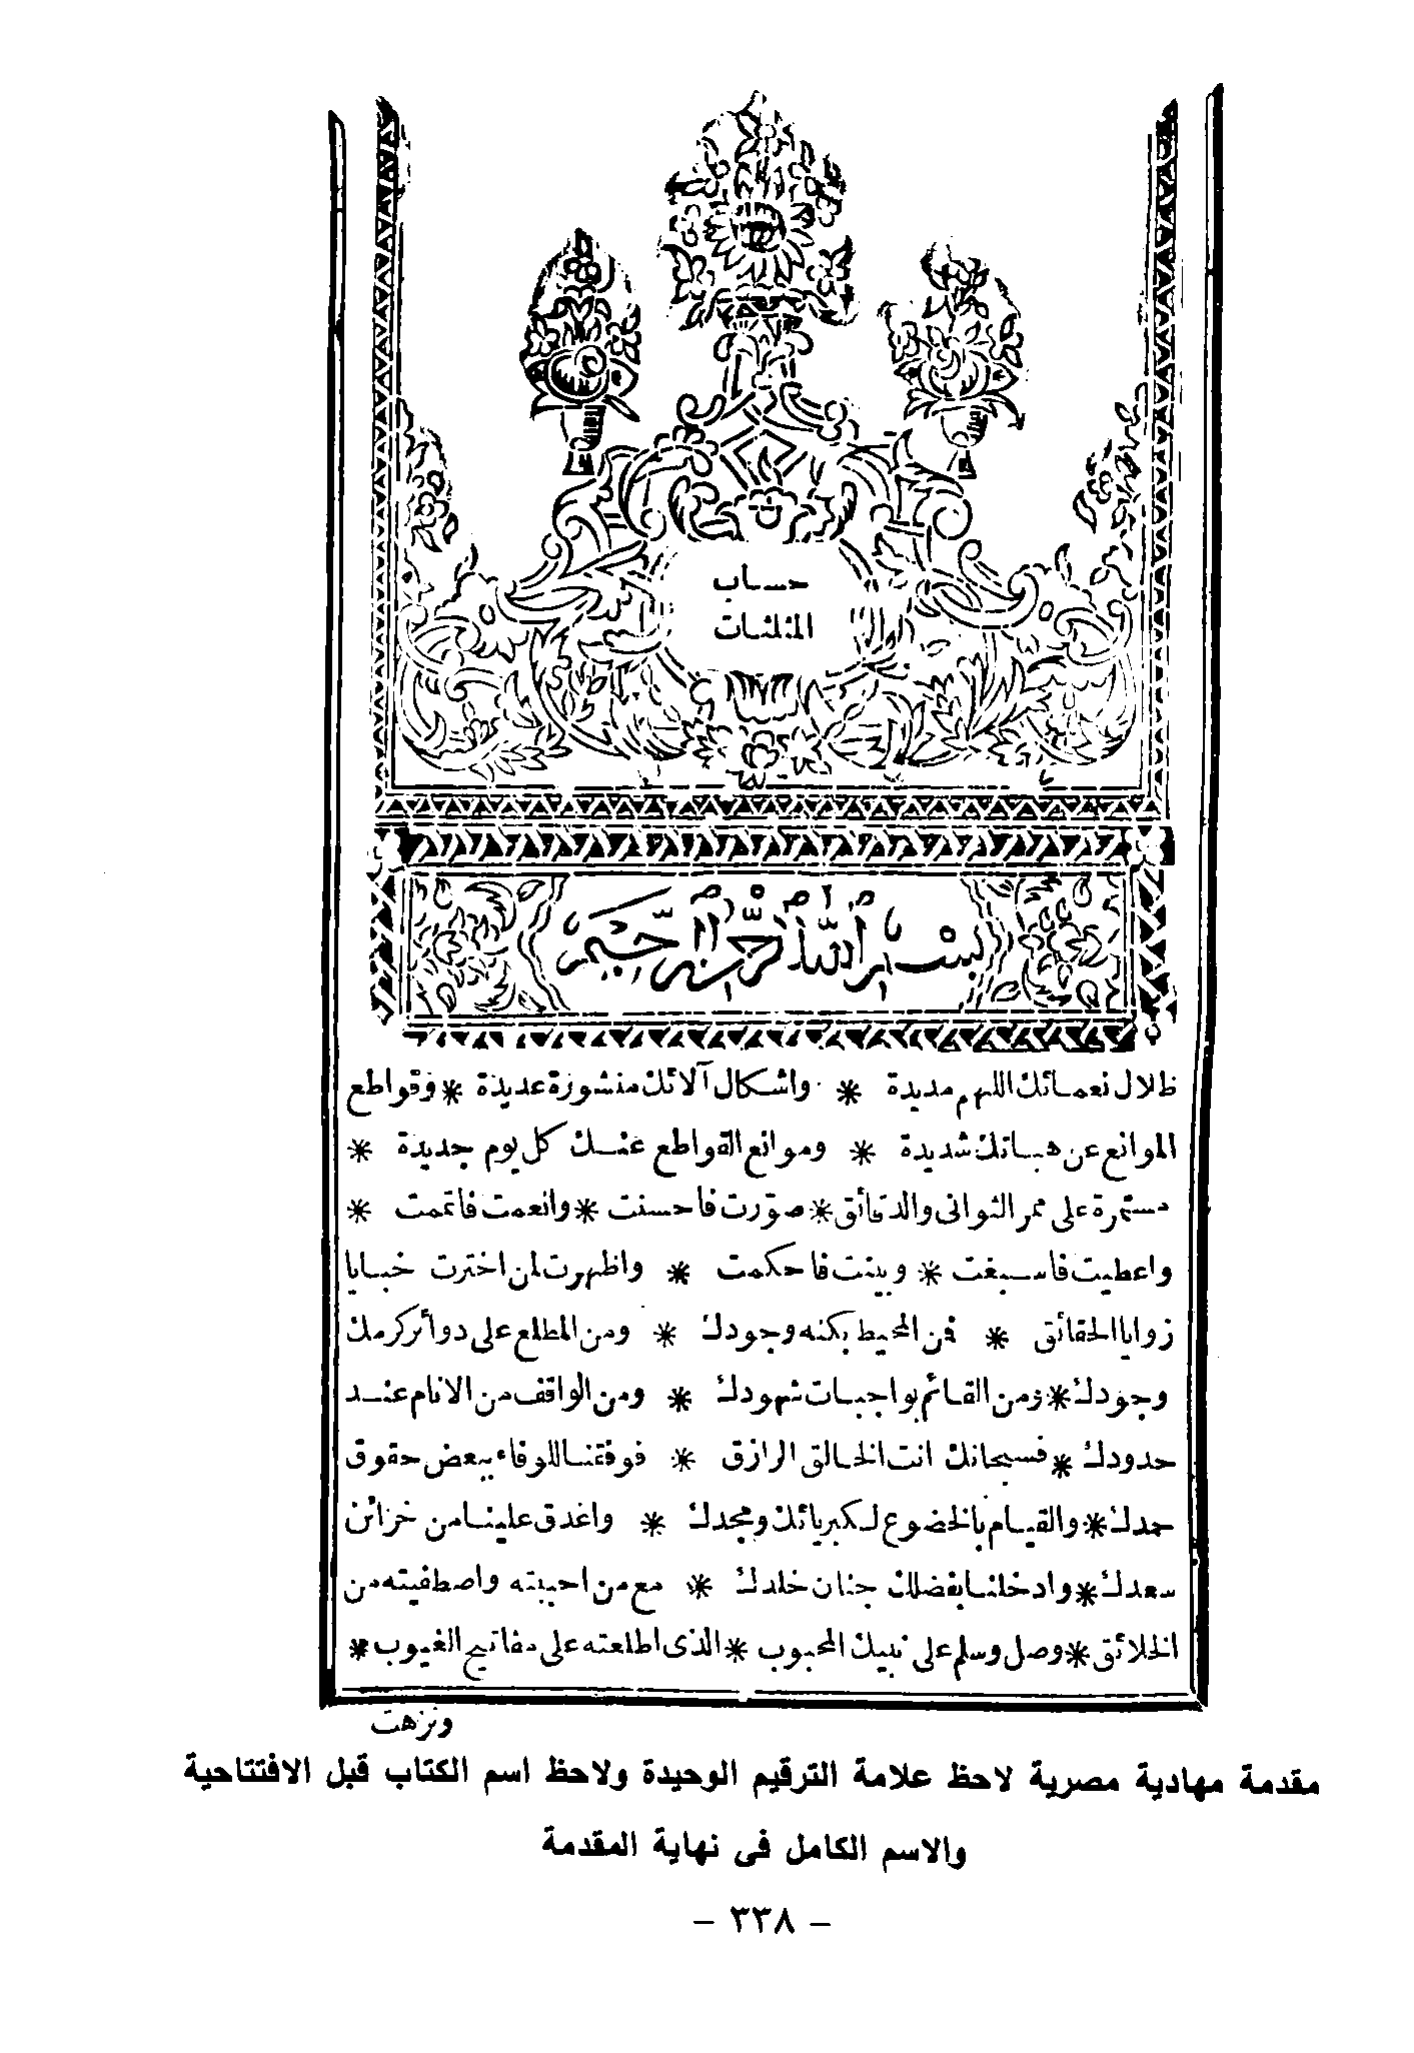 حساب
المثلثات
بسم الله الرحمن الرحيم
ظلال نعمائك اللهم مديدة * واشكال آلائك منشورة عديدة * وقواطع
الموانع عن هباتك شديدة * وموانع القواطع عنك كل يوم جديدة *
مستمرة على ممر الثوانى والدقائق * صوّرت فاحسنت * وانعمت فاتممت *
واعطيت فاسبغت * وبينت فاحكمت * واظهرت لمن اخترت خبايا
زوايا الحقائق * فمن المحيط بكنه وجودك * ومن المطلع على دوائر كرمك
وجودك * ومن القائم بواجبات شهودك * ومن الواقف من الانام عند
حدودك * فسبحانك انت الخالق الرازق * فوفقنا للوفاء ببعض حقوق
حمدك * والقيام بالخضوع لكبريائك ومجدك * واغدق علينا من خزائن
سعدك * وادخلنا بفضلك جنان خلدك * مع من احببته واصطفيته من
الخلائق * وصل وسلم على نبيك المحبوب * الذى اطلعته على مفاتيح الغيوب *
ونزهت
مقدمة مهادية مصرية لاحظ علامة الترقيم الوحيدة ولاحظ اسم الكتاب قبل الافتتاحية
والاسم الكامل فى نهاية المقدمة
- ٣٣٨ -